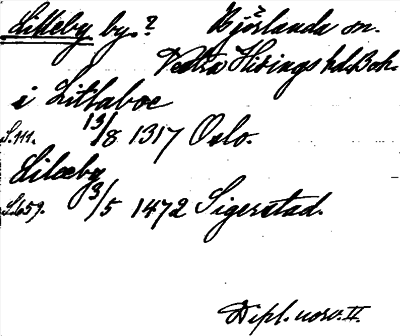 Lilleby by.? Björlanda sn.
Västra Hisings hd. Boh.
i Litlabœ
S. 111. 13/8 1317 Oslo.
Lilæby
S. 659. 3/5 1472 Sigerstad.
Dipl. norv. II.